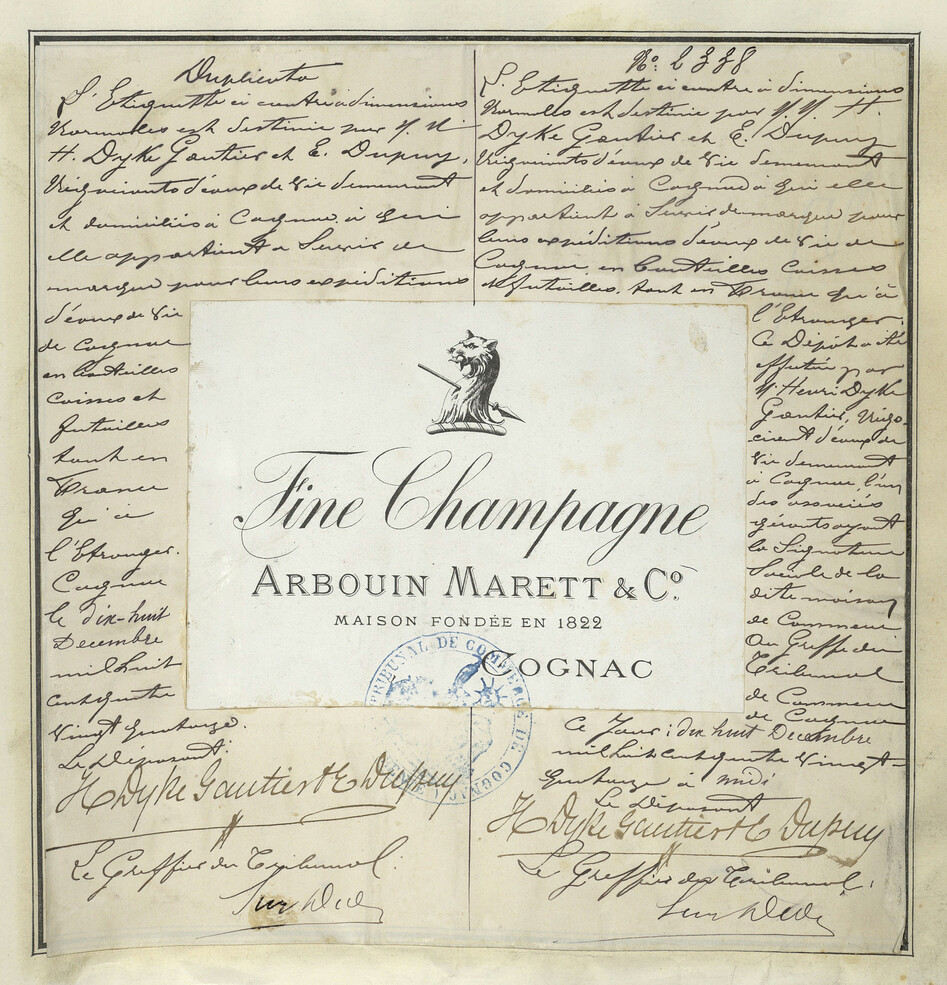 Duplicata
L'Etiquette ci contre à dimensions
Normales est destinée par M. M.
H. Dyke Gautier et E. Dupuy,
Négociants d'eaux de Vie demeurant
et domiciliés à Cognac, à qui
elle appartient à Servir de
marque pour leurs expéditions
d'eaux de Vie
de Cognac
en bouteilles
caisses et
futailles
tant en
France
qu'à
l'Etranger.
Cognac
le dix-huit
Décembre
mil huit
cent quatre
Vingt quatorze.
Le Déposant:
H Dyke Gautier & E Dupuy
Le Greffier du Tribunal:
No: 2338
L'Etiquette ci contre à dimensions
Normales est destinée par M. M. H.
Dyke Gautier et E. Dupuy
Négociants d'eaux de Vie demeurant
et domiciliés à Cognac à qui elle
appartient à Servir de marque pour
leurs expéditions d'eaux de Vie de
Cognac, en bouteilles caisses
et futailles, tant en France qu'à
l'Etranger.
Ce Dépôt a été
effectué par
M Henri Dyke
Gautier, Négo-
ciant d'eaux de
Vie demeurant
à Cognac l'un
des associés
gérants ayant
la Signature
Sociale de la
dite maison
de Commerce
Au Greffe du
Tribunal
de Commerce
de Cognac
ce Jour: dix huit Décembre
mil huit cent quatre Vingt-
quatorze à midi
Le Déposant
H Dyke Gautier & E Dupuy
Le Greffier du Tribunal:
Fine Champagne
ARBOUIN MARETT & Co.
MAISON FONDÉE EN 1822
COGNAC
TRIBUNAL DE COMMERCE DE COGNAC